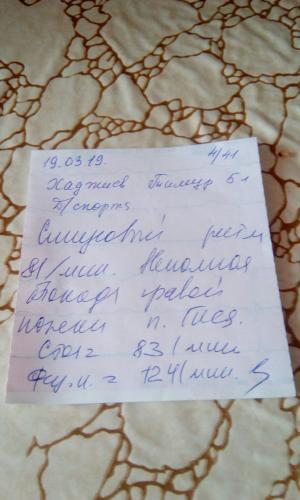 19.03.19. 4/41
Хаджиев Тимур 5 л
Д/спорта
Синусовый ритм
81/мин. Неполная
блокада правой
ножки п. Гиса.
Стоя = 83/мин
Физ.н. = 124/мин.